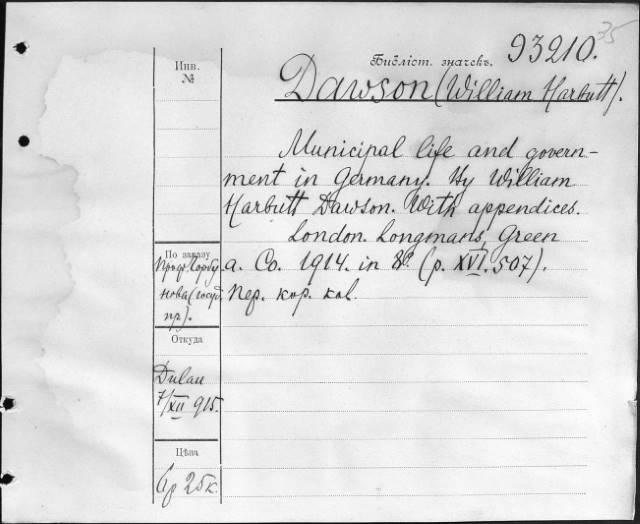 35
Бібліот. значекъ. 93210.
Инв.
№
Dawson (William Harbutt).
Municipal life and govern-
ment in Germany. By William
Harbutt Dawson. With appendices.
London. Longmans, Green
a. Co. 1914. in 8º. (p. XVI. 507).
Пер. кор. кол.
По заказу
Проф. Горбу-
нова (госуд.
пр).
Откуда
Dulau
7/XII 915.
Цѣна
6р 25к.